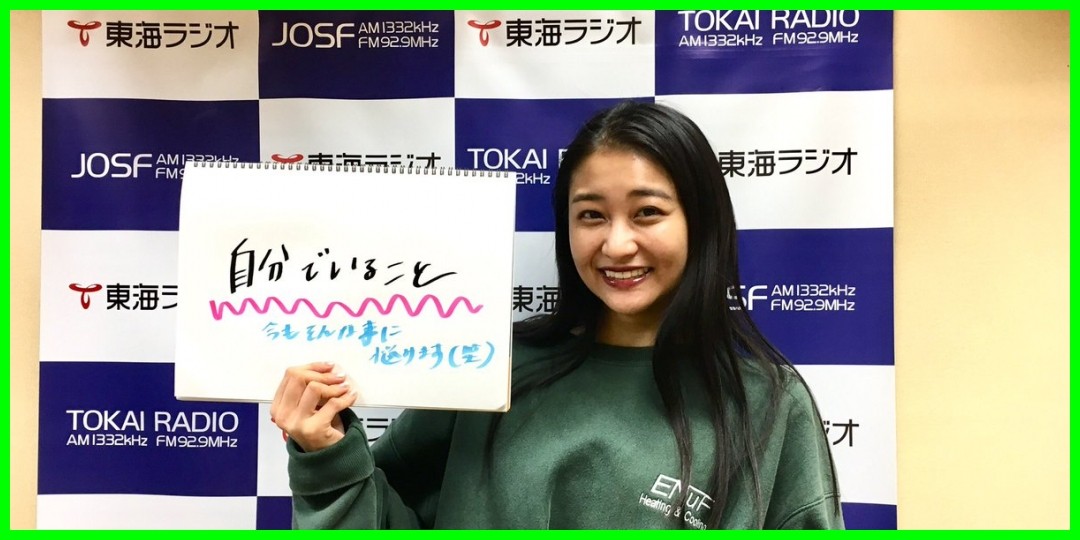 東海ラジオ
JOSF AM1332kHz FM92.9MHz
東海ラジオ
TOKAI RADIO
AM1332kHz FM92.9MHz
JOSF AM1332kHz
東海ラジオ
TOKAI
東海ラジオ
自分でいること
今もそんな事に
悩みます(笑)
東海
SF AM1332kHz
FM92.9MHz
TOKAI RADIO
AM1332kHz FM92.9MHz
ジオ
Heating & Cooling